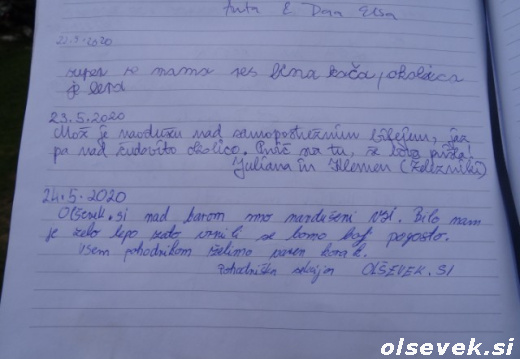 Anta & Dan Elsa
23.5.2020
super se mama res fina koča, okolica
je lepa
23.5.2020
Mož je navdušen nad samopostrežnim bifejem, jaz
pa nad čudovito okolico. Prvič na tu, še bova prišla!
Juliana in Klemen (Železniki)
24.5.2020
Olševek.si nad barom smo navdušeni vsi. Bilo nam
je zelo lepo vrnili se bomo bolj pogosto.
Vsem pohodnikom želimo varen korak.
Pohodniška sekcija OLŠEVEK.SI
olsevek.si